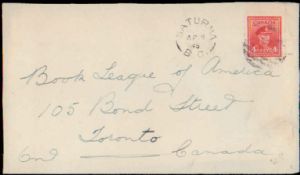 SATURNA
AP
45
B.C.
CANADA
4 4
Book League of America
105 Bond Street
Toronto
Canada